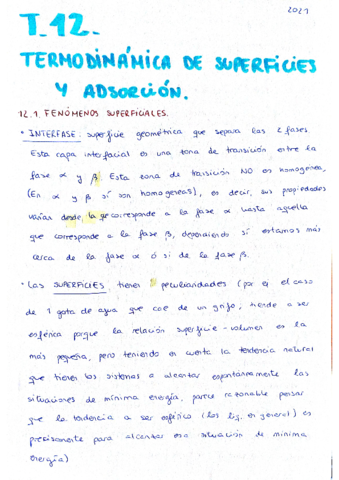 2021
T.12.
TERMODINÁMICA DE SUPERFICIES
Y ADSORCIÓN.
12.1. FENÓMENOS SUPERFICIALES.
• INTERFASE: superficie geométrica que separa las 2 fases.
Esta capa interfacial es una zona de transición entre la
fase α y β. Esta zona de transición NO es homogenea,
(En α y β sí son homogéneas), es decir, sus propiedades
varias desde la qe corresponde a la fase α hasta aquella
que corresponde a la fase β, dependiendo si estamos más
cerca de la fase α ó si de la fase β.
• Las SUPERFICIES, tienen peculiaridades (por ej el caso
de 1 gota de agua que cae de un grifo, tiende a ser
esférica porque la relación superficie-volumen es la
más pequeña, pero teniendo en cuenta la tendencia natural
que tienen los sistemas a alcanzar espontáneamente las
situaciones de mínima energía, parece razonable pensar
que la tendencia a ser esférico (los líq. en general) es
precisamente para alcanzar esa situación de mínima
energía)